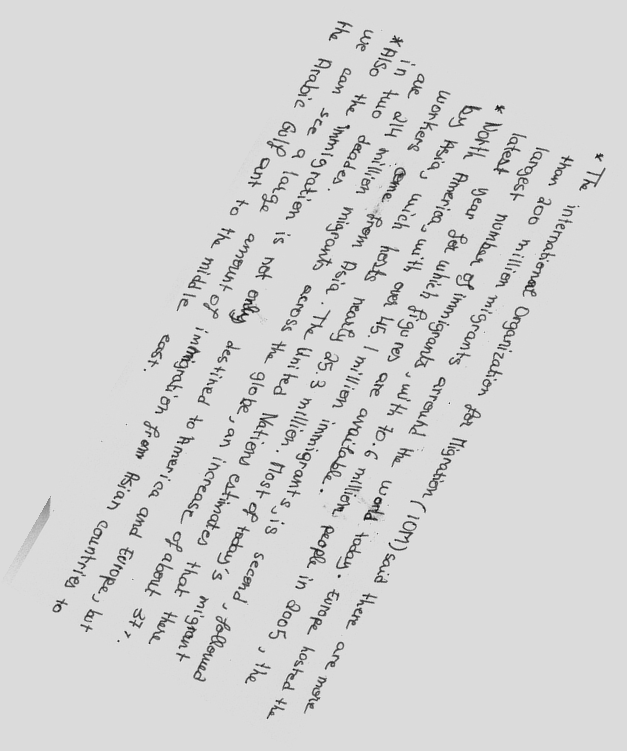 * The international Organization for Migration (IOM) said there are more
than 200 million migrants arround the world today. Europe hosted the
largest number of immigrants, with 70.6 million people in 2005, the
latest year for which figures are available.
* North America, with over 45.1 million immigrants, is second, followed
by Asia, wich hosts nearly 25.3 million. Most of today's migrant
workers come from Asia. The United Nations estimates that there
are 214 million migrants across the globe, an increase of about 37%.
in two decades.
* Also the immigration is not only destined to America and Europe, but
we can see a large amount of immigration from Asian countries to
the Arabic Gulf ant to the middle east.